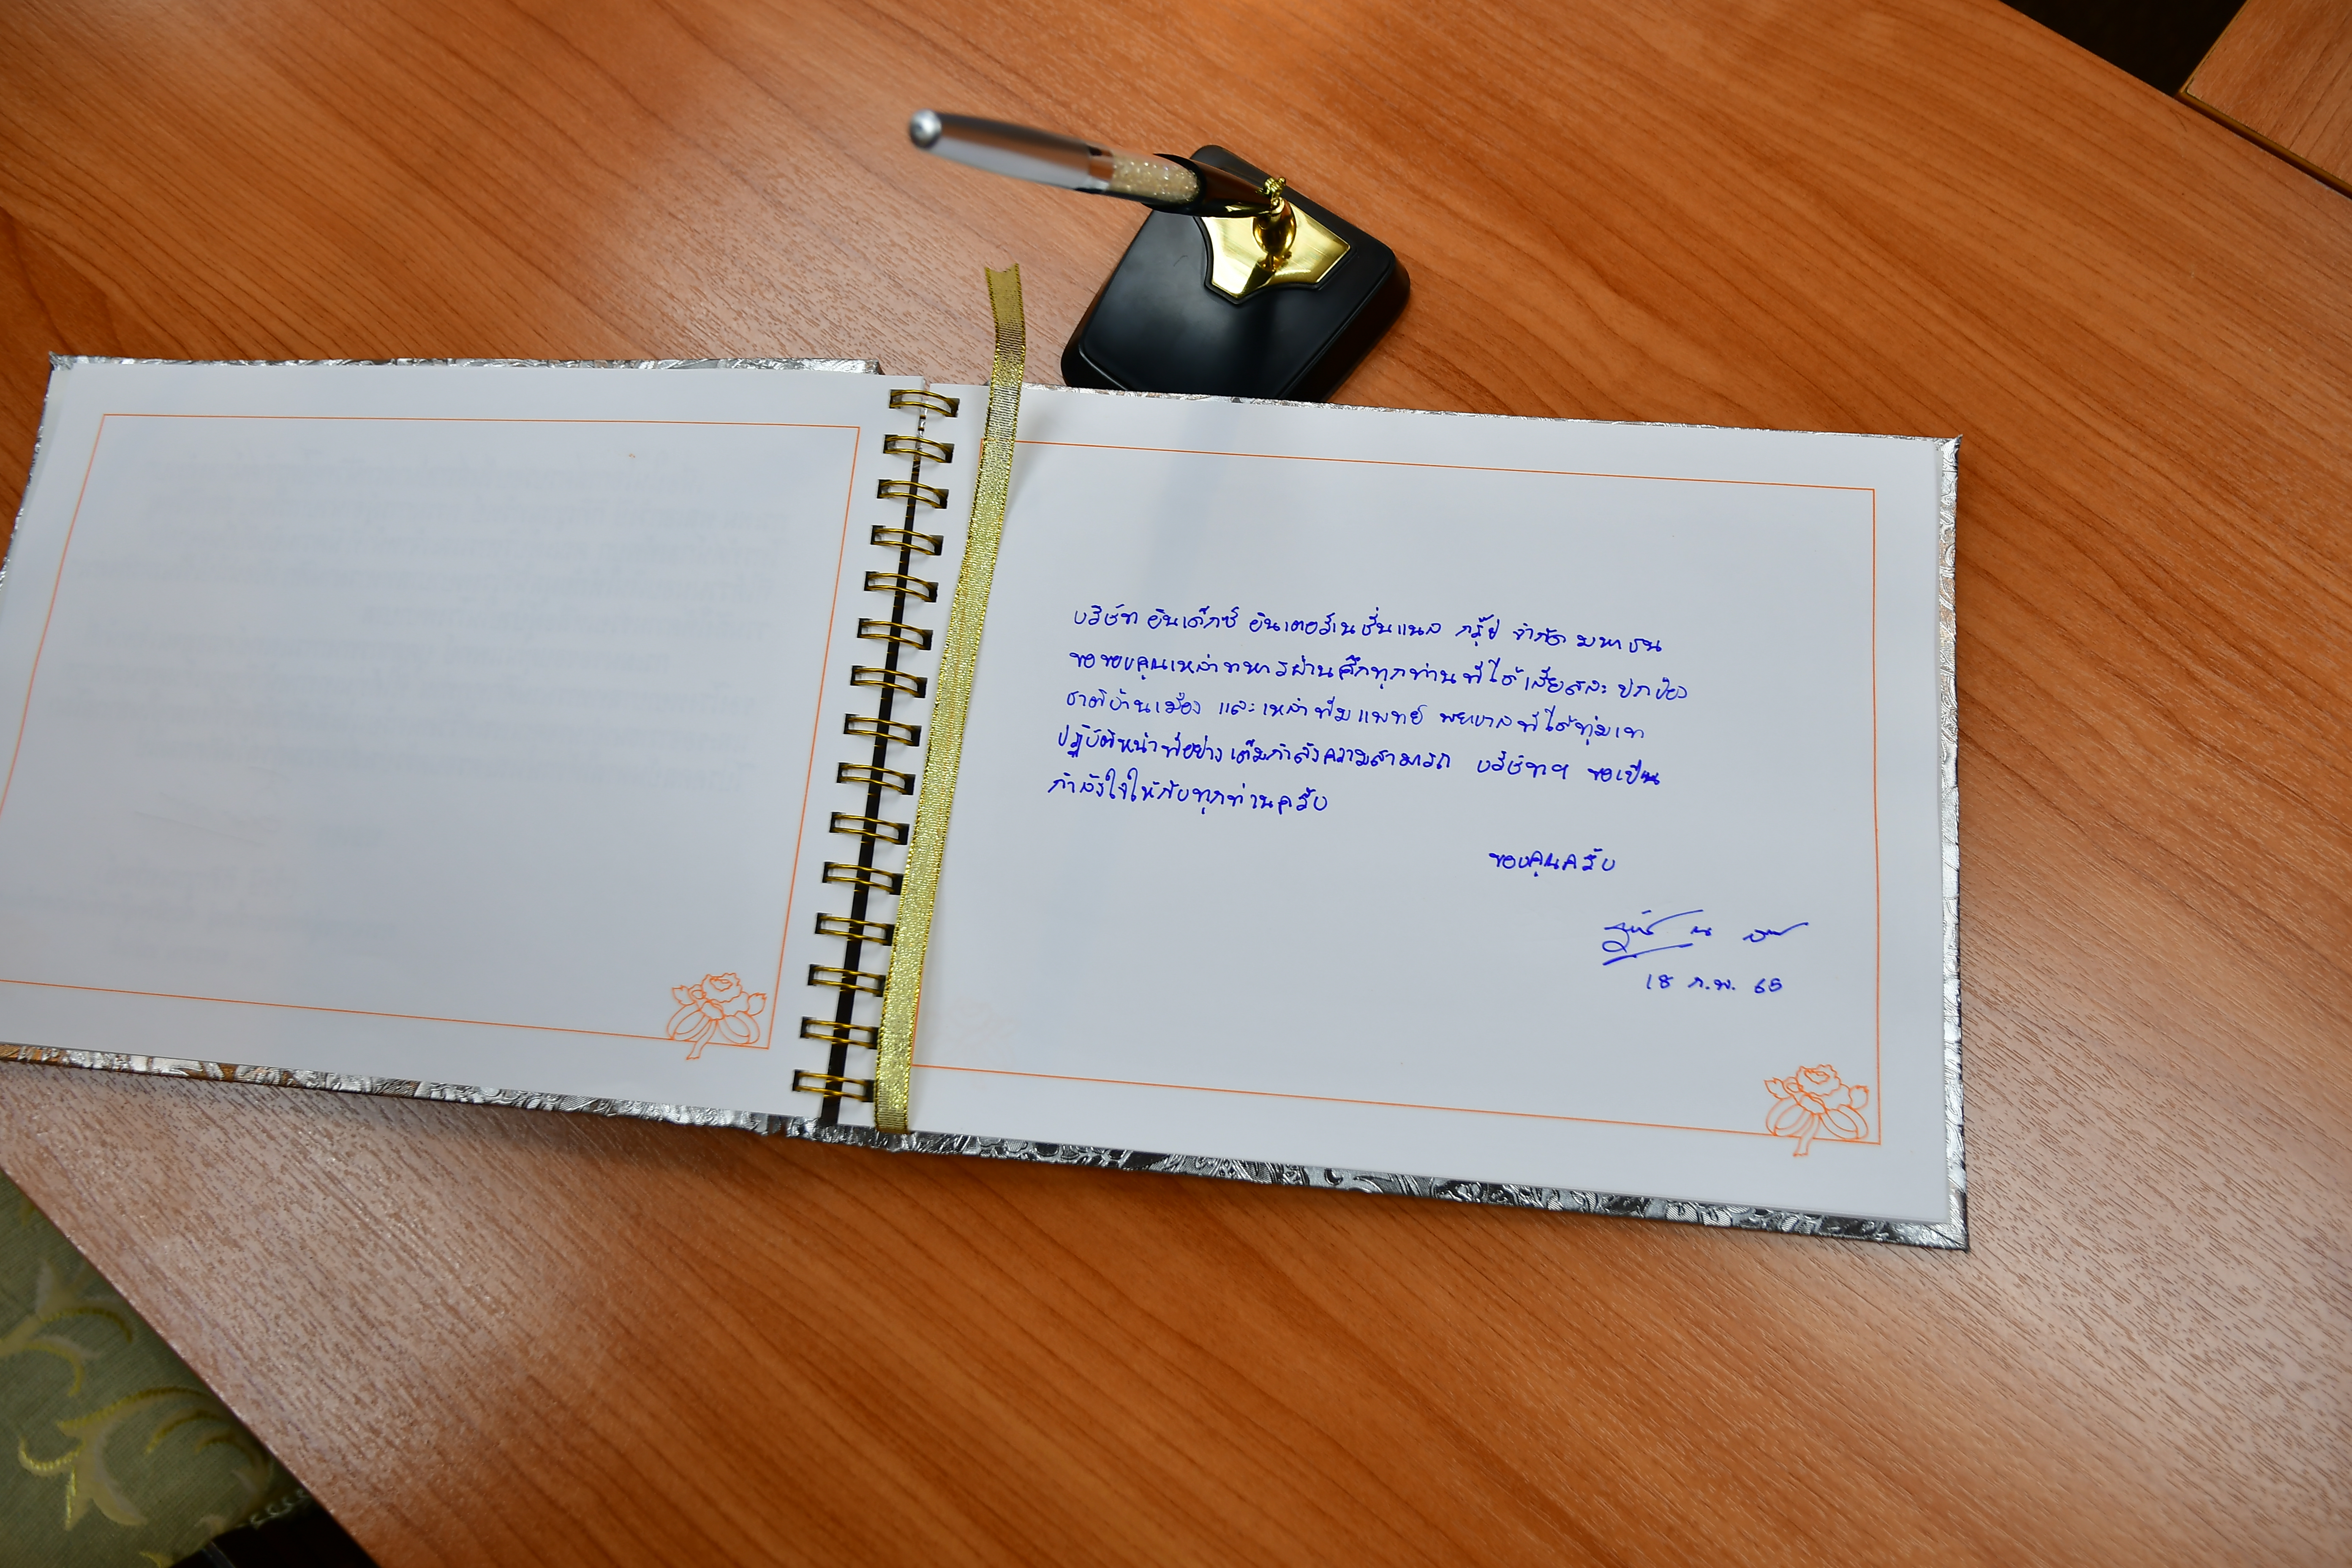 บริษัท อินเด็กซ์ อินเตอร์เนชั่นแนล กรุ๊ป จำกัด มหาชน
ขอขอบคุณเหล่าทหารผ่านศึกทุกท่านที่ได้เสียสละ ปกป้อง
ชาติบ้านเมือง และเหล่าทีมแพทย์ พยาบาลที่ได้ทุ่มเท
ปฏิบัติหน้าที่อย่างเต็มกำลังความสามารถ บริษัทฯ ขอเป็น
กำลังใจให้กับทุกท่านครับ
ขอบคุณครับ
18 ก.พ. 65